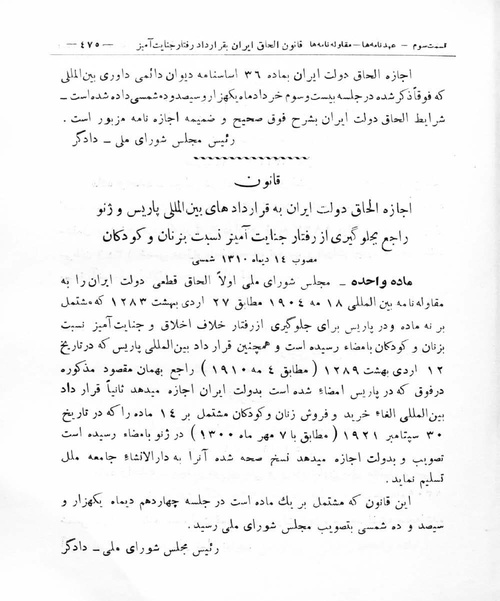 قسمت سوم – عهدنامه‌ها – مقاوله‌نامه‌ها قانون الحاق ایران بقرارداد رفتار جنایت‌آمیز – ٤٧٥ –
اجازه الحاق دولت ایران بماده ٣٦ اساسنامه دیوان دائمی داوری بین‌المللی
که فوقاً ذکر شده در جلسه بیست و سوم خردادماه یکهزار و سیصد و ده شمسی داده شده است –
شرایط الحاق دولت ایران بشرح فوق صحیح و ضمیمه اجازه نامه مزبور است .
رئیس مجلس شورای ملی – دادگر
قانون
اجازه الحاق دولت ایران به قراردادهای بین‌المللی پاریس و ژنو
راجع بجلوگیری از رفتار جنایت آمیز نسبت بزنان و کودکان
مصوب ١٤ دیماه ١٣١٠ شمسی
ماده واحده – مجلس شورای ملی اولاً الحاق قطعی دولت ایران را به
مقاوله‌نامه بین المللی ١٨ مه ١٩٠٤ مطابق ٢٧ اردی بهشت ١٢٨٣ که مشتمل
بر نه ماده و در پاریس برای جلوگیری از رفتار خلاف اخلاق و جنایت‌آمیز نسبت
بزنان و کودکان بامضاء رسیده است و همچنین قرار داد بین‌المللی پاریس که در تاریخ
١٢ اردی بهشت ١٢٨٩ ( مطابق ٤ مه ١٩١٠ ) راجع بهمان مقصود مذکوره
در فوق که در پاریس امضاء شده است بدولت ایران اجازه میدهد ثانیاً قرار داد
بین‌المللی الغاء خرید و فروش زنان و کودکان مشتمل بر ١٤ ماده را که در تاریخ
٣٠ سپتامبر ١٩٢١ ( مطابق با ٧ مهر ماه ١٣٠٠ ) در ژنو بامضاء رسیده است
تصویب و بدولت اجازه میدهد نسخ صحه شده آنرا به دارالانشاء جامعه ملل
تسلیم نماید .
این قانون که مشتمل بر یك ماده است در جلسه چهاردهم دیماه یکهزار و
سیصد و ده شمسی بتصویب مجلس شورای ملی رسید .
رئیس مجلس شورای ملی – دادگر